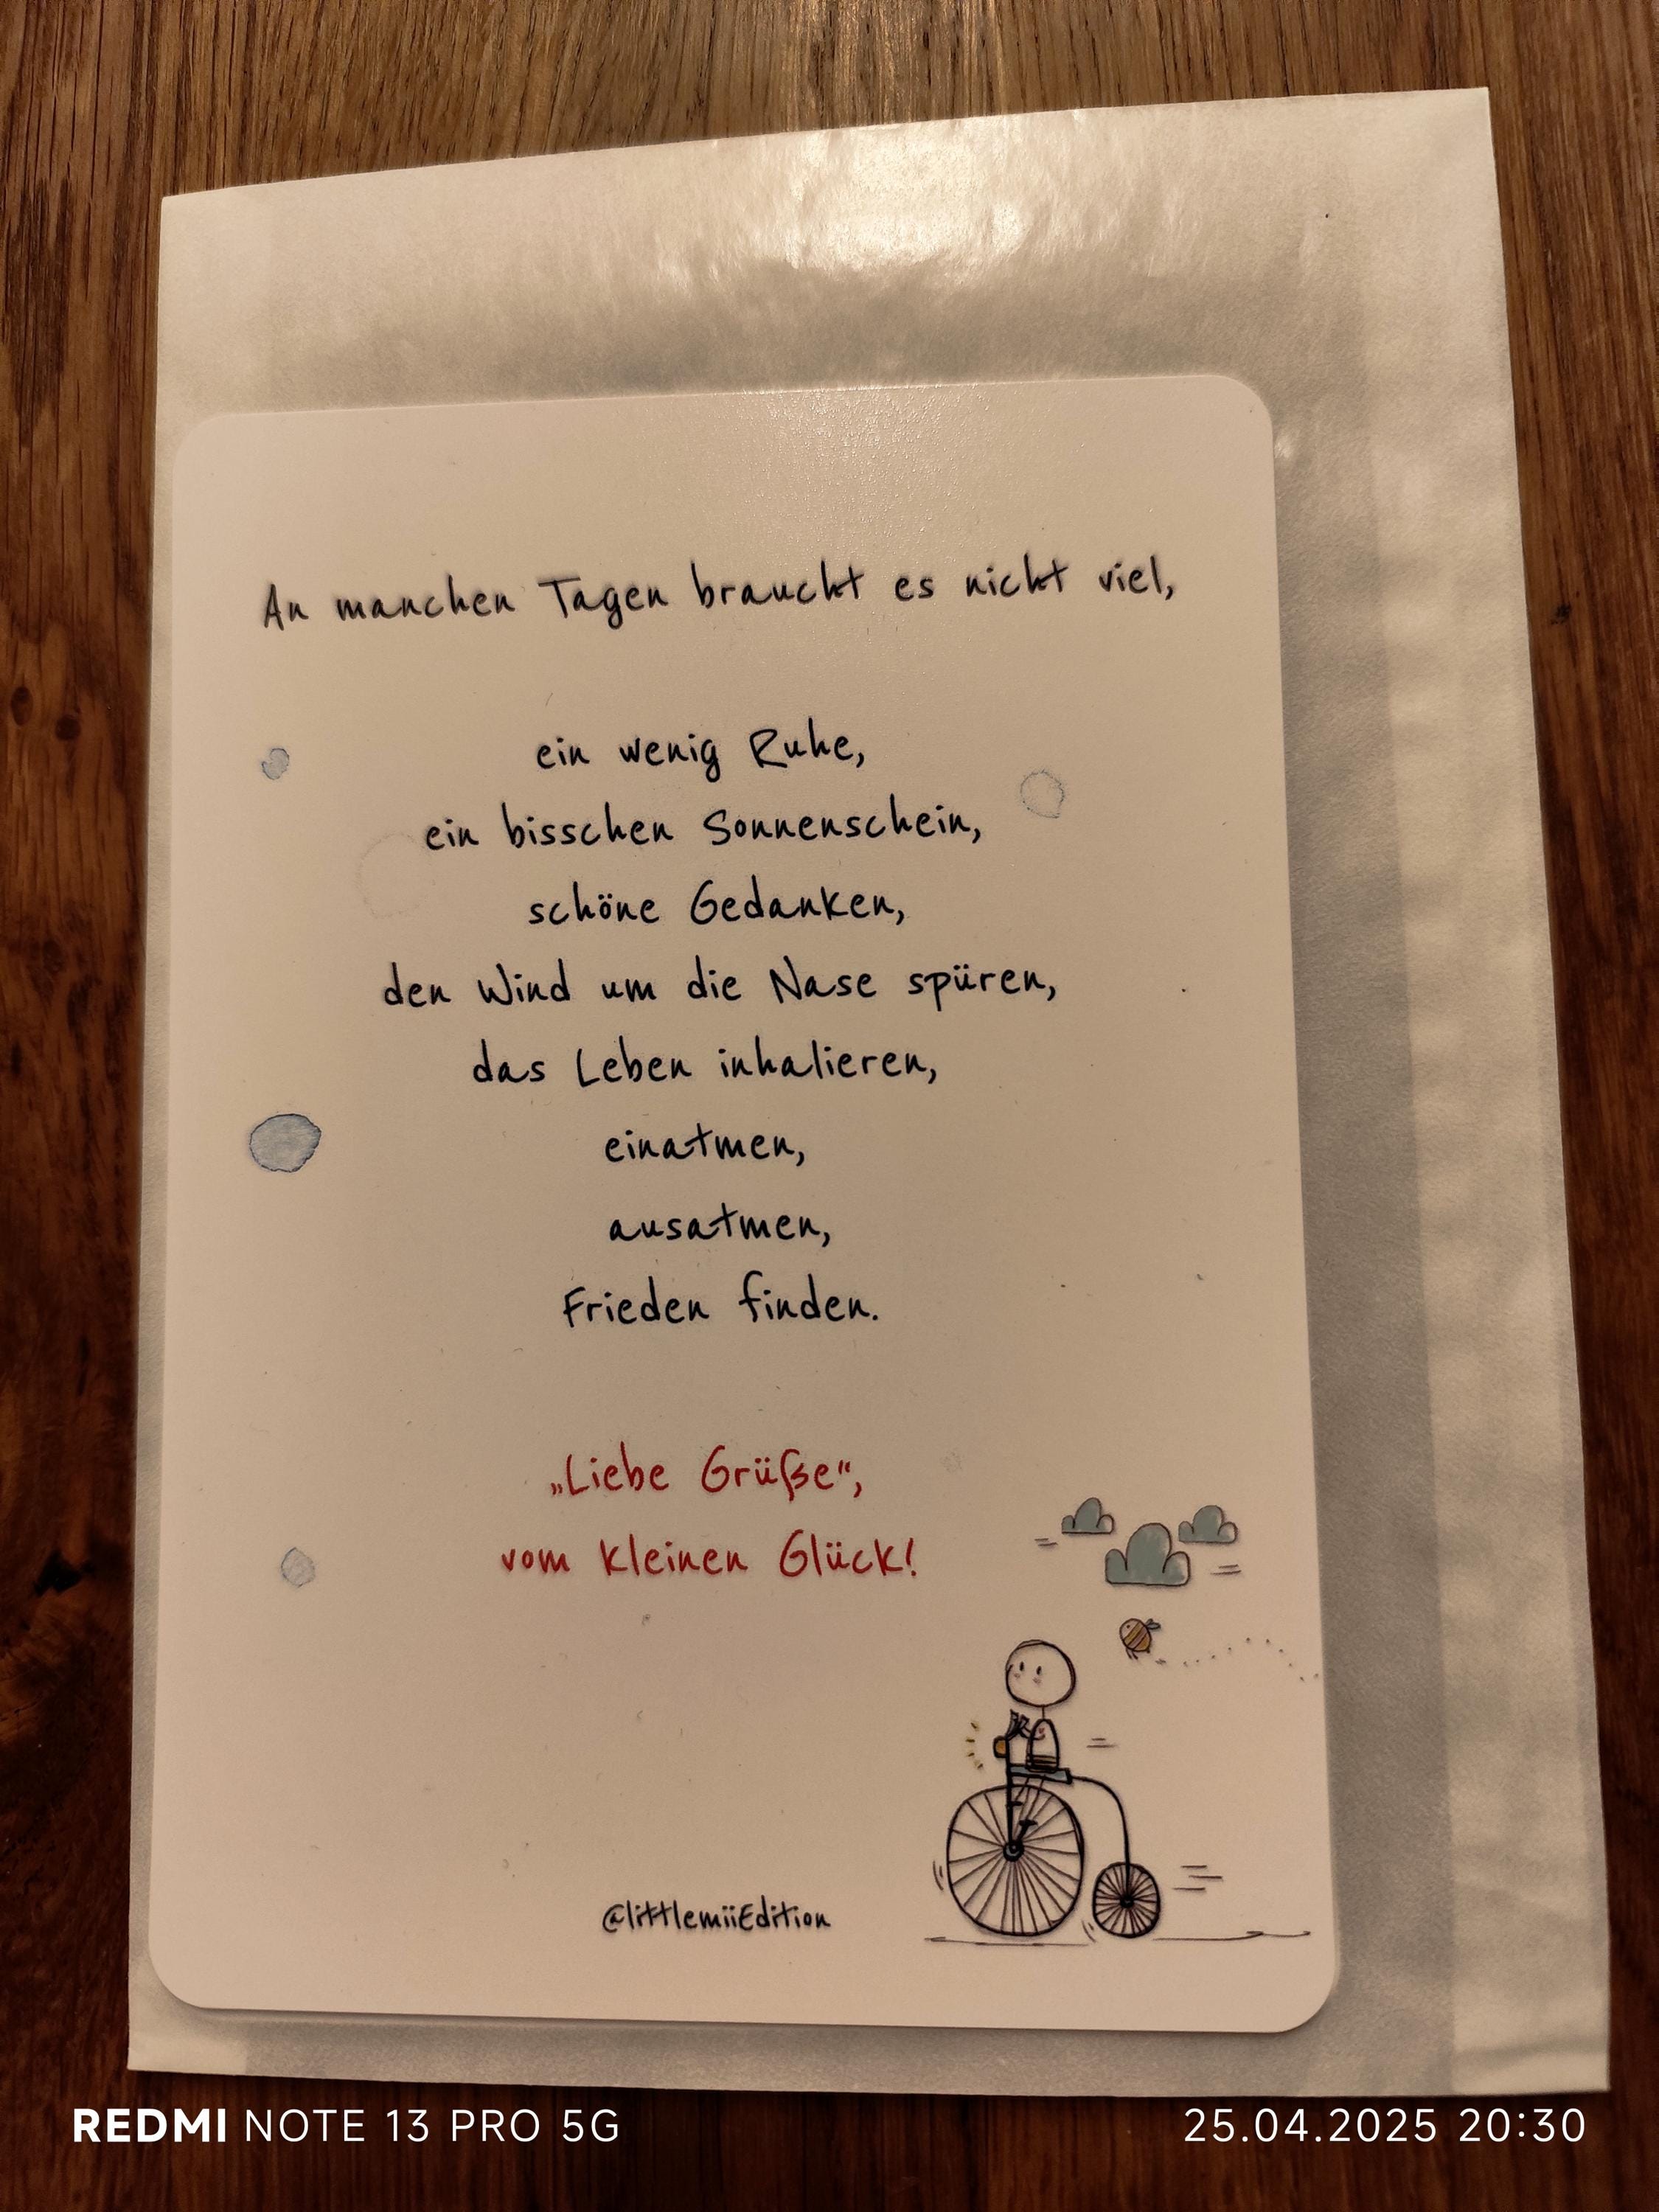 An manchen Tagen braucht es nicht viel,
ein wenig Ruhe,
ein bisschen Sonnenschein,
schöne Gedanken,
den Wind um die Nase spüren,
das Leben inhalieren,
einatmen,
ausatmen,
Frieden finden.
„Liebe Grüße“,
vom kleinen Glück!
@littlemiiEdition
REDMI NOTE 13 PRO 5G
25.04.2025 20:30